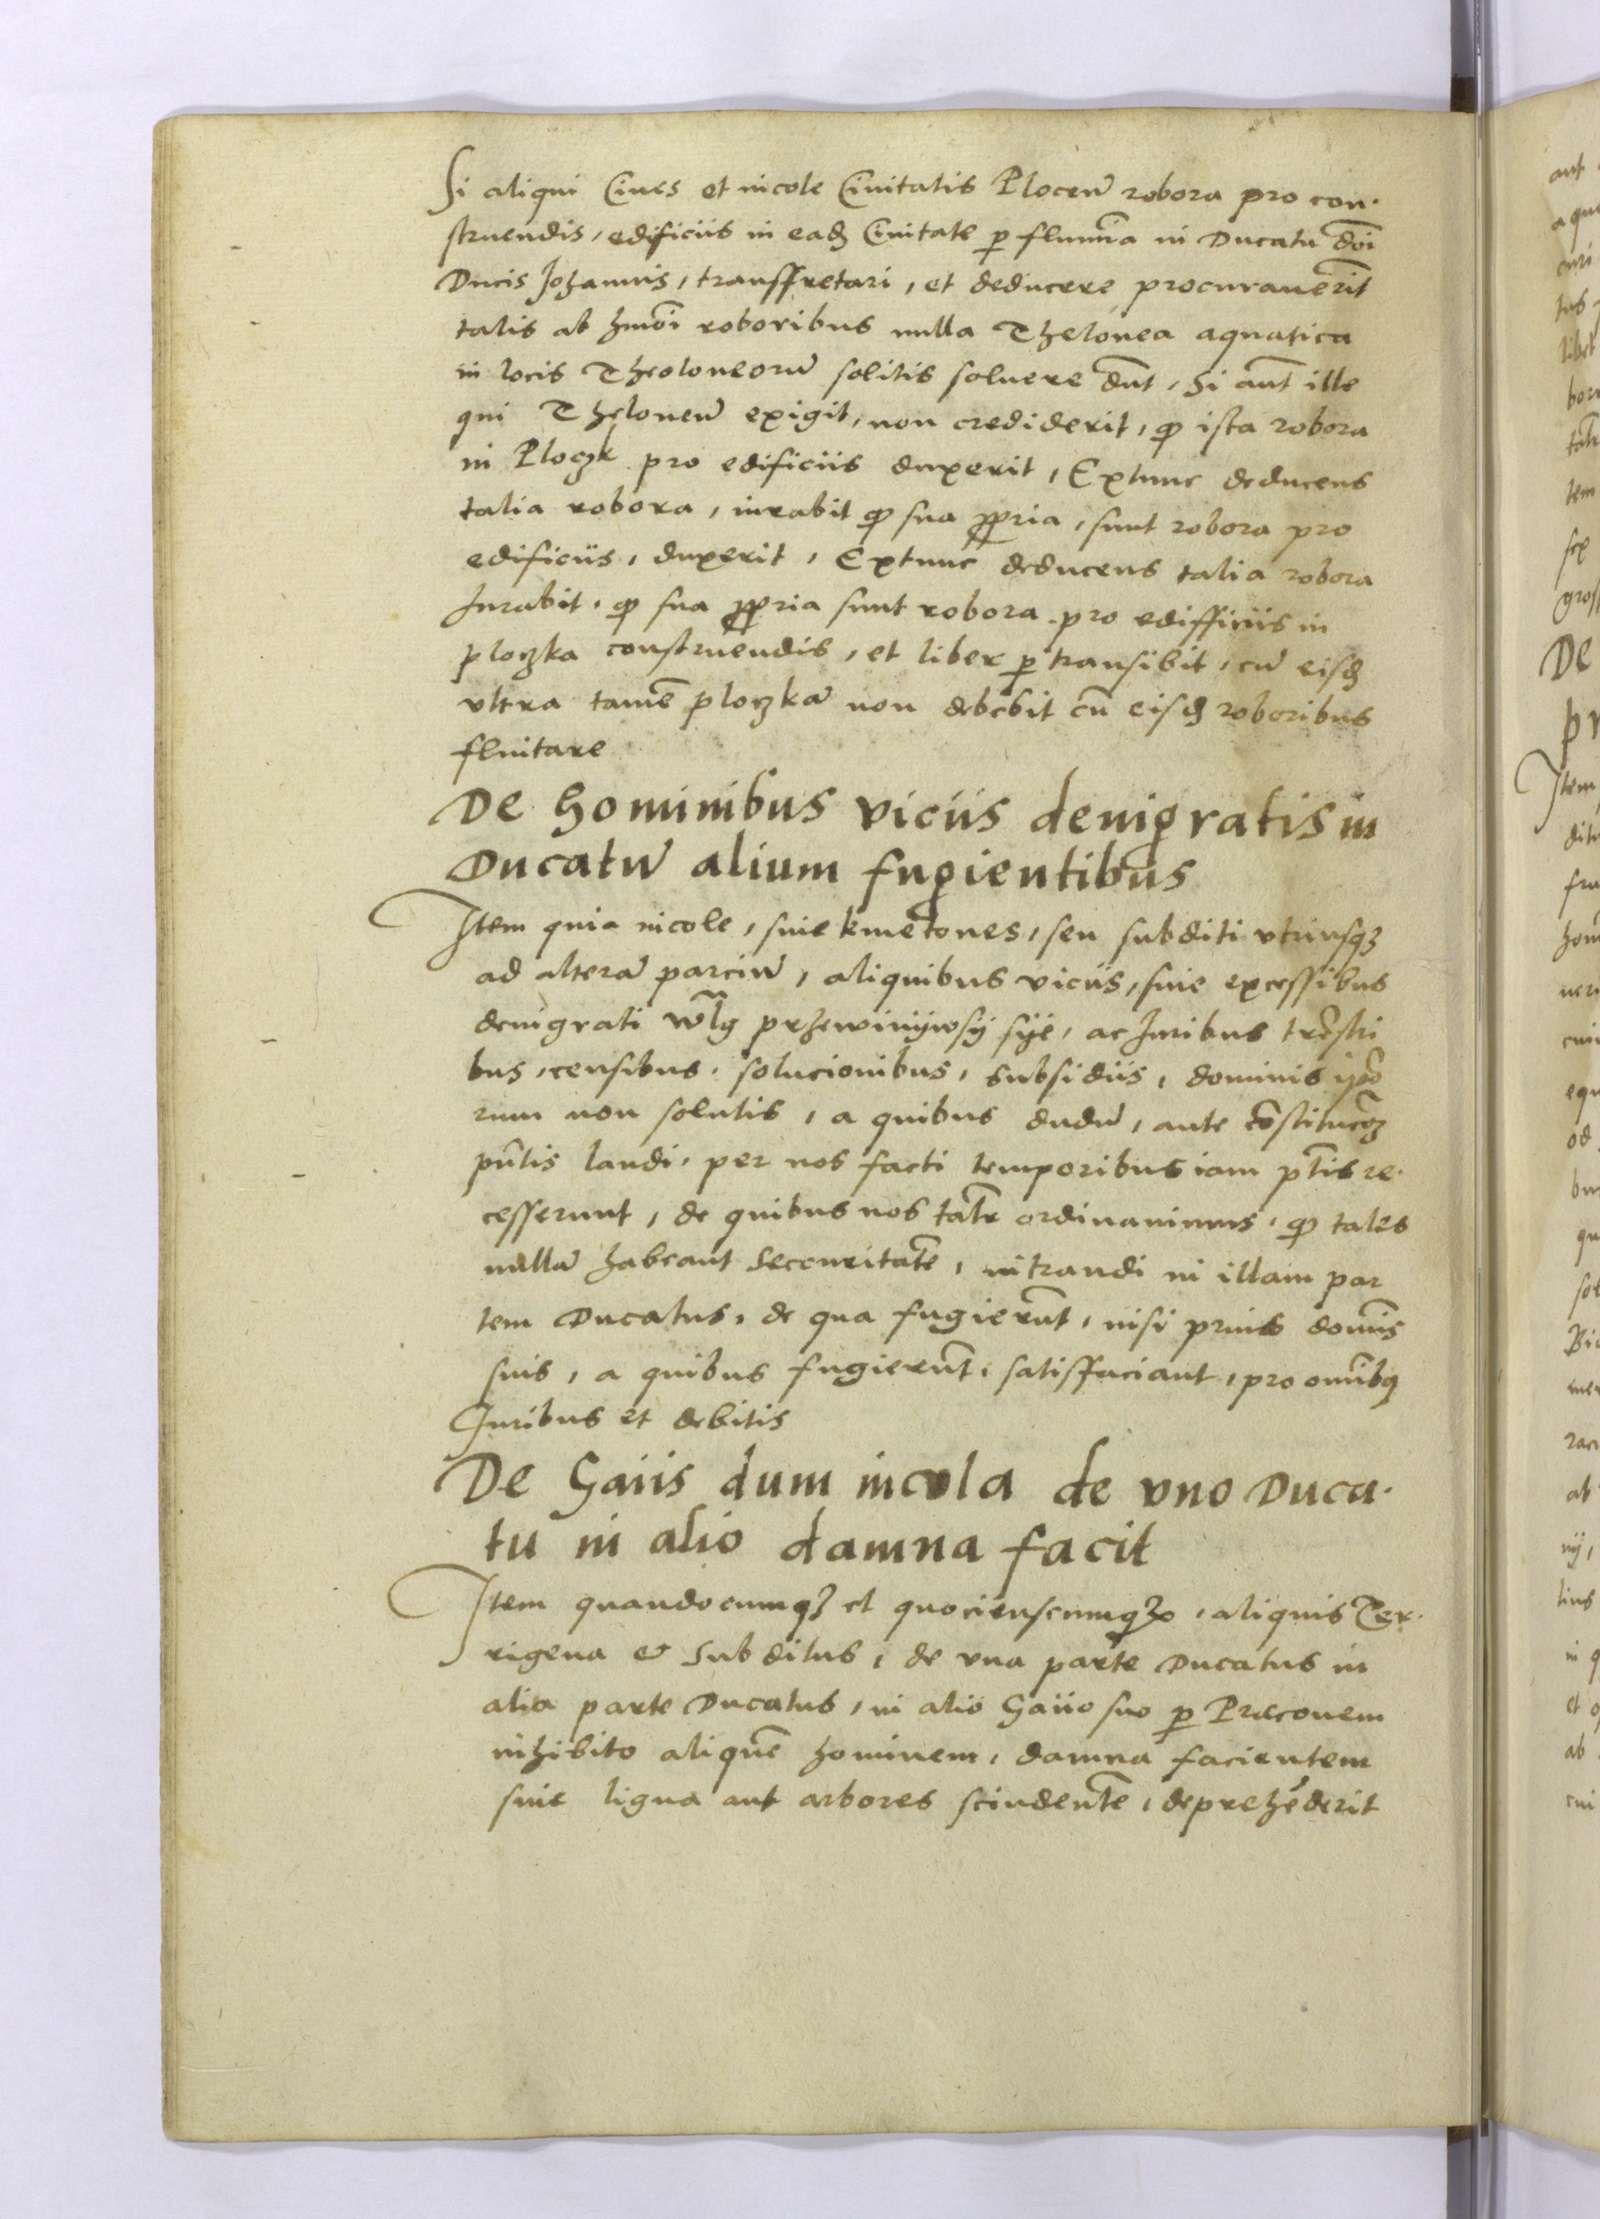 Si aliqui Ciues et incole Ciuitatis Plocen̄ robora pro con-
struendis, edificiis in ead̄ Ciuitate ꝑ flumīa in Ducatu dn̄i
Ducis Johannis, transffretari, et deducere procurauerīt
talis ab hmōi roboribus nulla Thelonea aquatica
in locis Theoloneorū solitis soluere dn̄t, Si aūt ille
qui Theloneū exigit, non crediderit, ꝙ ista robora
in Ploczk pro edificiis duxerit, Extunc deducens
talia robora, iurabit ꝙ sua ꝓpria, sunt robora pro
edificiis, duxerit, Extunc deducens talia robora
Jurabit, ꝙ sua ꝓpria sunt robora pro edifficiis in
ploczka construendis, et liber ꝑ transibit, cū eisd̄
vltra tamē ploczkā non debebit cū eisd̄ roboribus
fluitare
De hominibus viciis denigratis in
Ducatū alium fugientibus
Item quia incole, siue kmetones, seu subditi vtriusqȝ
ad alterā parciū, aliquibus viciis, siue excessibus
denigrati wlg̃ przewinijwsij sije, ac Juribus tr̄estri
bus, censibus, solucionibus, subsidiis, dominis ip̄o
rum non solutis, a quibus dudū, ante cōstitucōȝ
pn̄tis laudi, per nos facti temporibus iam pt̄is re-
cesserunt, de quibus nos talr̄ ordinauimus, ꝙ tales
nullā habeant seccuritatē, intrandi in illam par
tem Ducatus, de qua fugierūt, nisi prius domīs
suis, a quibus fugierūt, satisffaciant, pro omībꝫ
Juribus et debitis
De Gaiis dum incola de vno Duca-
tu in alio damna facit
Item quandocumqȝ et quocienscumqȝ, aliquis Ter-
rigena & subditus, de vna parte Ducatus in
alia parte Ducatus, in alio Gaiio suo ꝑ Præconem
inhibito aliquē hominem, damna facientem
siue ligna aut arbores scindentē, deprehēderit